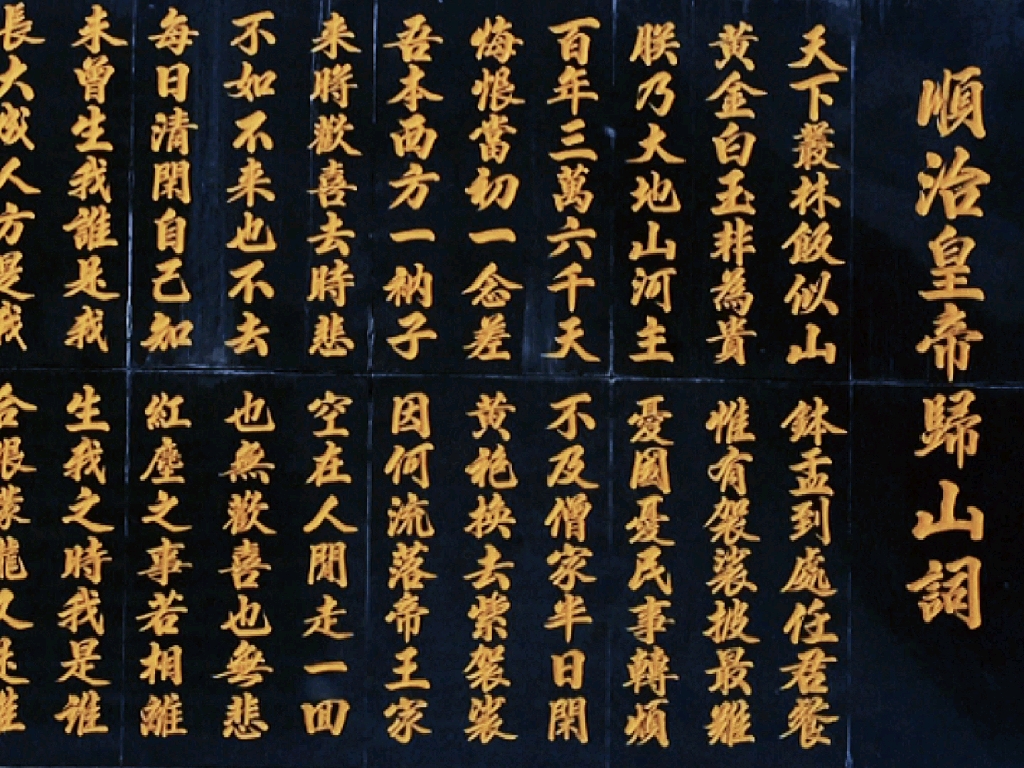 順治皇帝歸山詞
天下叢林飯似山鉢盂到處任君餐
黃金白玉非為貴惟有袈裟披最難
朕乃大地山河主憂國憂民事轉煩
百年三萬六千天不及僧家半日閑
悔恨當初一念差黃袍換去紫袈裟
吾本西方一衲子因何流落帝王家
来時歡喜去時悲空在人間走一回
不如不来也不去也無歡喜也無悲
每日清閑自己知紅塵之事若相離
未曾生我誰是我生我之時我是誰
長大成人方是我合眼朦朧又是誰